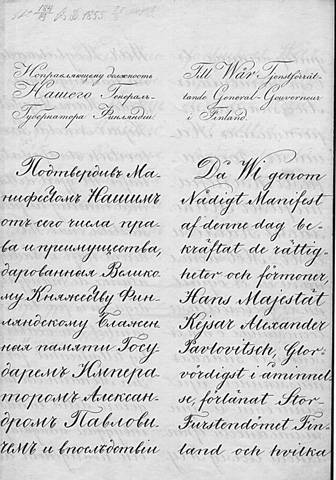 184/49 1855
Исправляющему должность
Нашего Генералъ-
Губернатора Финляндіи.
Подтвердивъ Ма-
нифестомъ Нашимъ
отъ сего числа пра-
ва и преимущества,
дарованныя Велико-
му Княжеству Фин-
ляндскому блажен-
ныя памяти Госу-
даремъ Импера-
торомъ Алексан-
дромъ Павлови-
чемъ и впослѣдствіи
Till Wår Tjenstförrät-
tande General-Gouverneur
i Finland.
Då Wi genom
Nådigt Manifest
af denne dag be-
kräftat de rättig-
heter och förmoner,
Hans Majestät
Kejsar Alexander
Pavlovitsch, Glor-
vördigst i åminnel-
se, förlänat Stor-
Furstendömet Fin-
land och hvilka